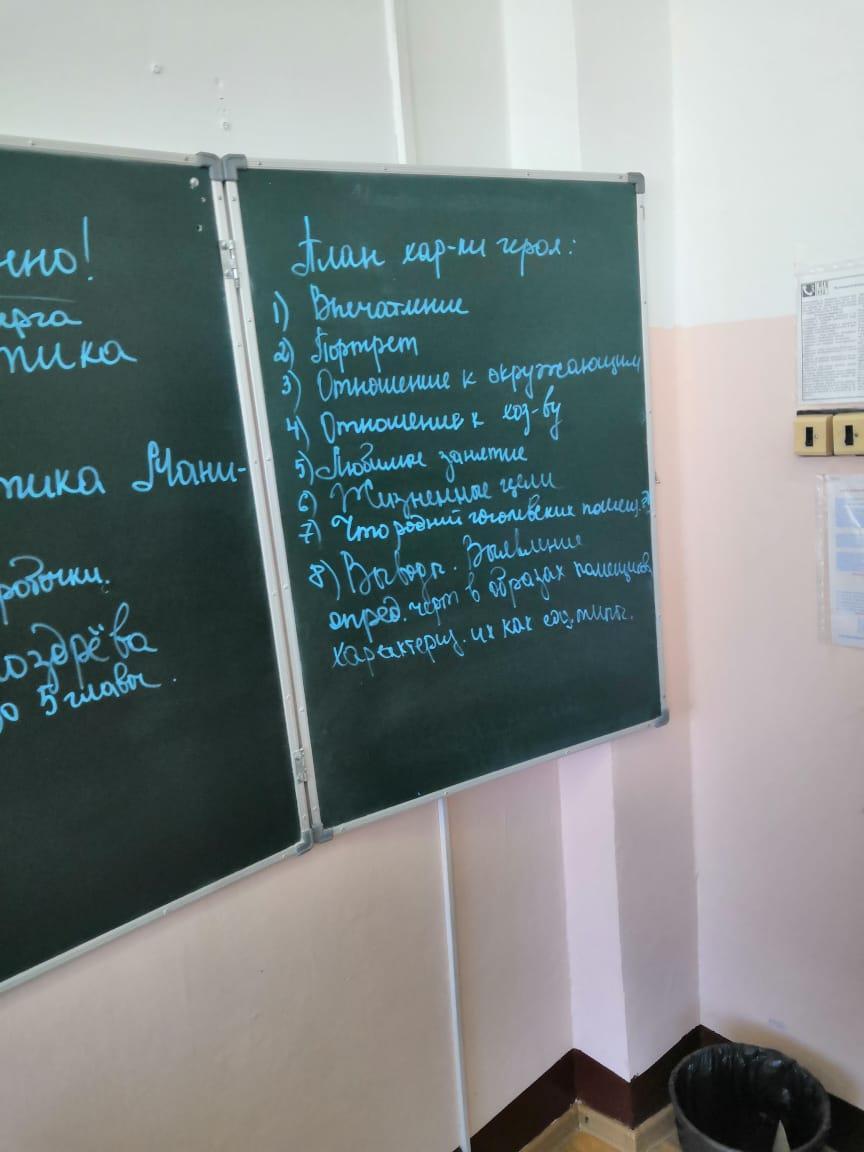 чно!
ерга
тика
тика Мани-
робочки.
оздрёва
до 5 главы.
План хар-ки героя:
1) Впечатление
2) Портрет
3) Отношение к окружающим
4) Отношение к хоз-ву
5) Любимое занятие
6) Жизненные цели
7) Что роднит гоголевских помещ.?
8) Выводы. Выявление
опред. черт в образах помещиков,
характериз. их как соц. типы.